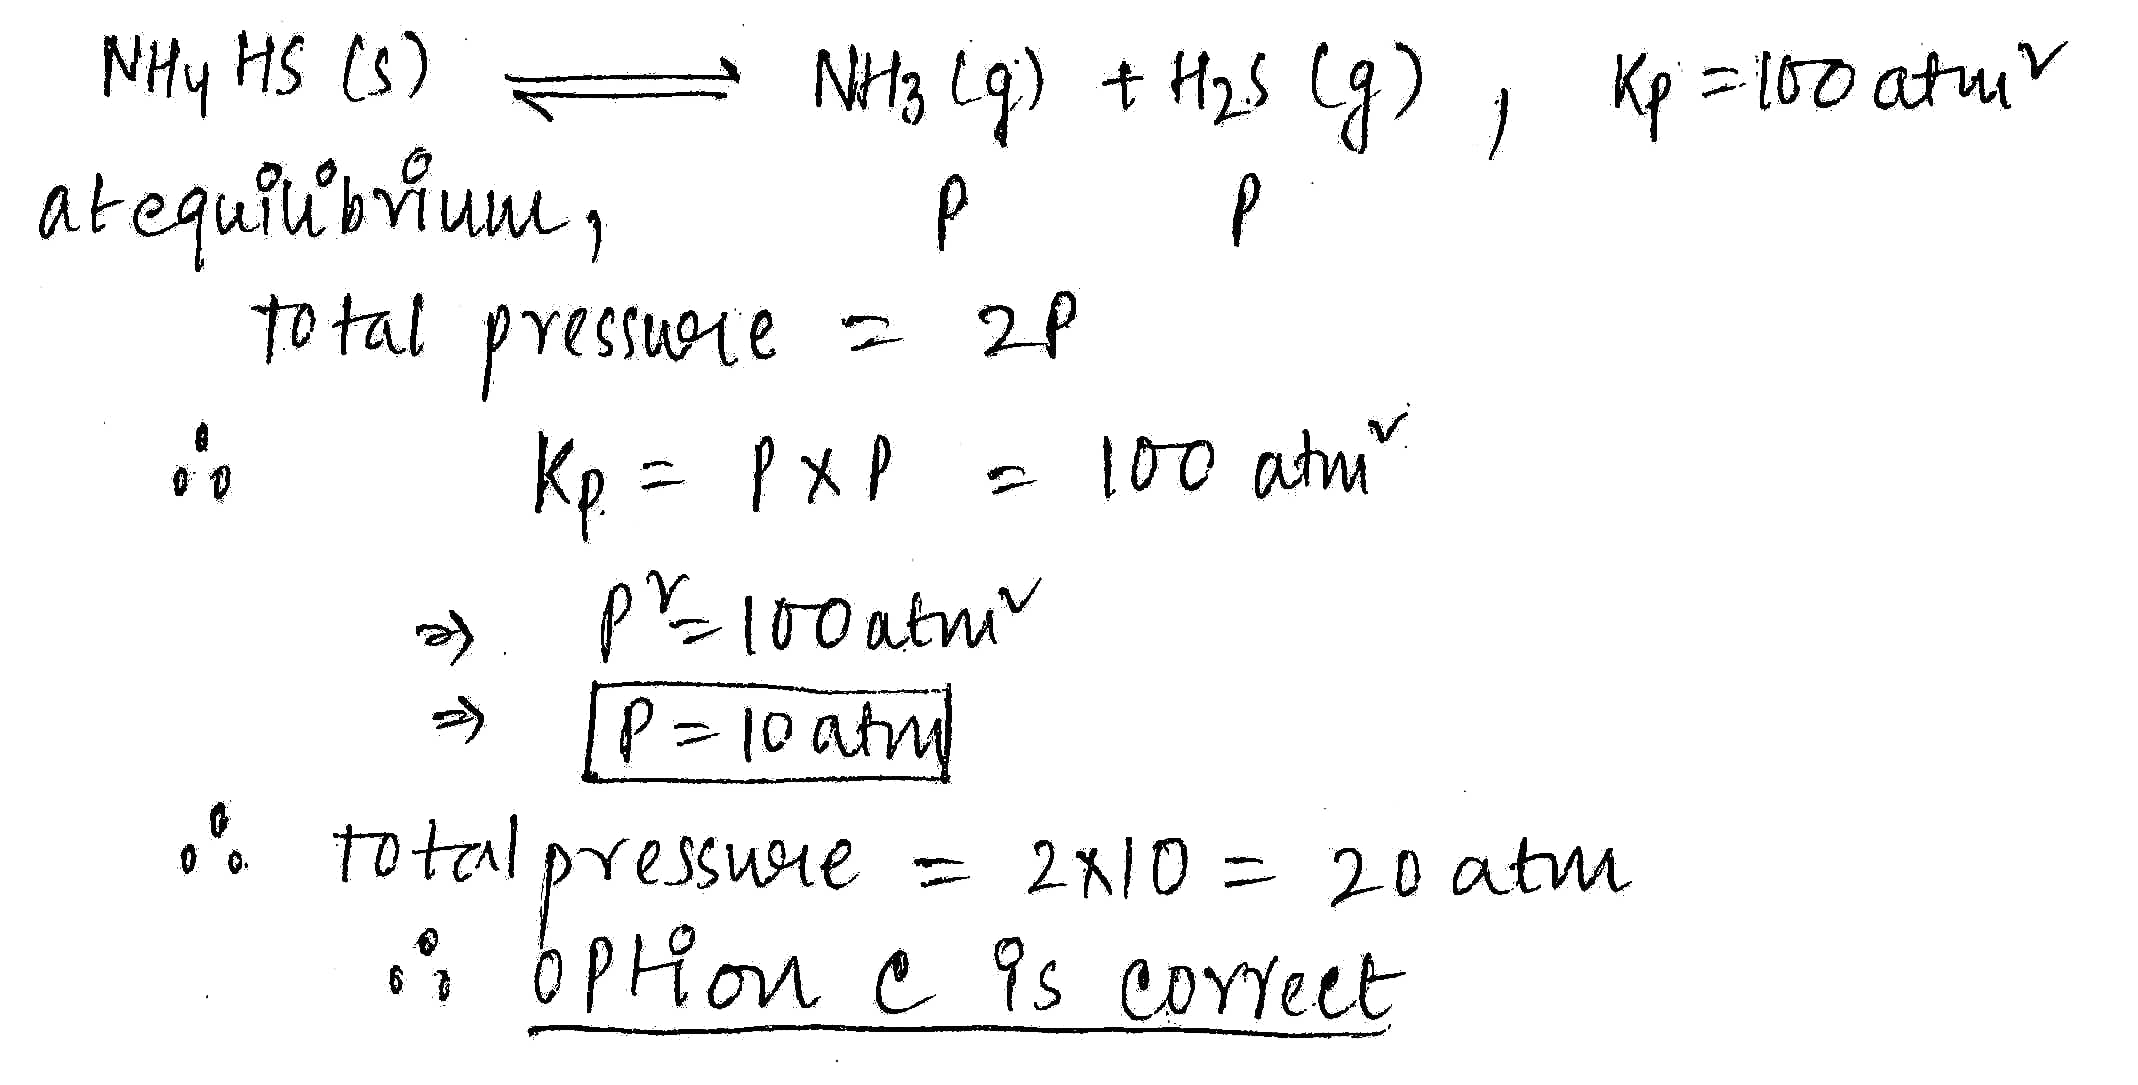 NH4 HS (s) ⇌ NH3 (g) + H2S (g) , Kp = 100 atm²
at equilibrium, P P
total pressure = 2P
∴ Kp = P × P = 100 atm²
⇒ P² = 100 atm²
⇒ P = 10 atm
∴ total pressure = 2×10 = 20 atm
∴ option c is correct